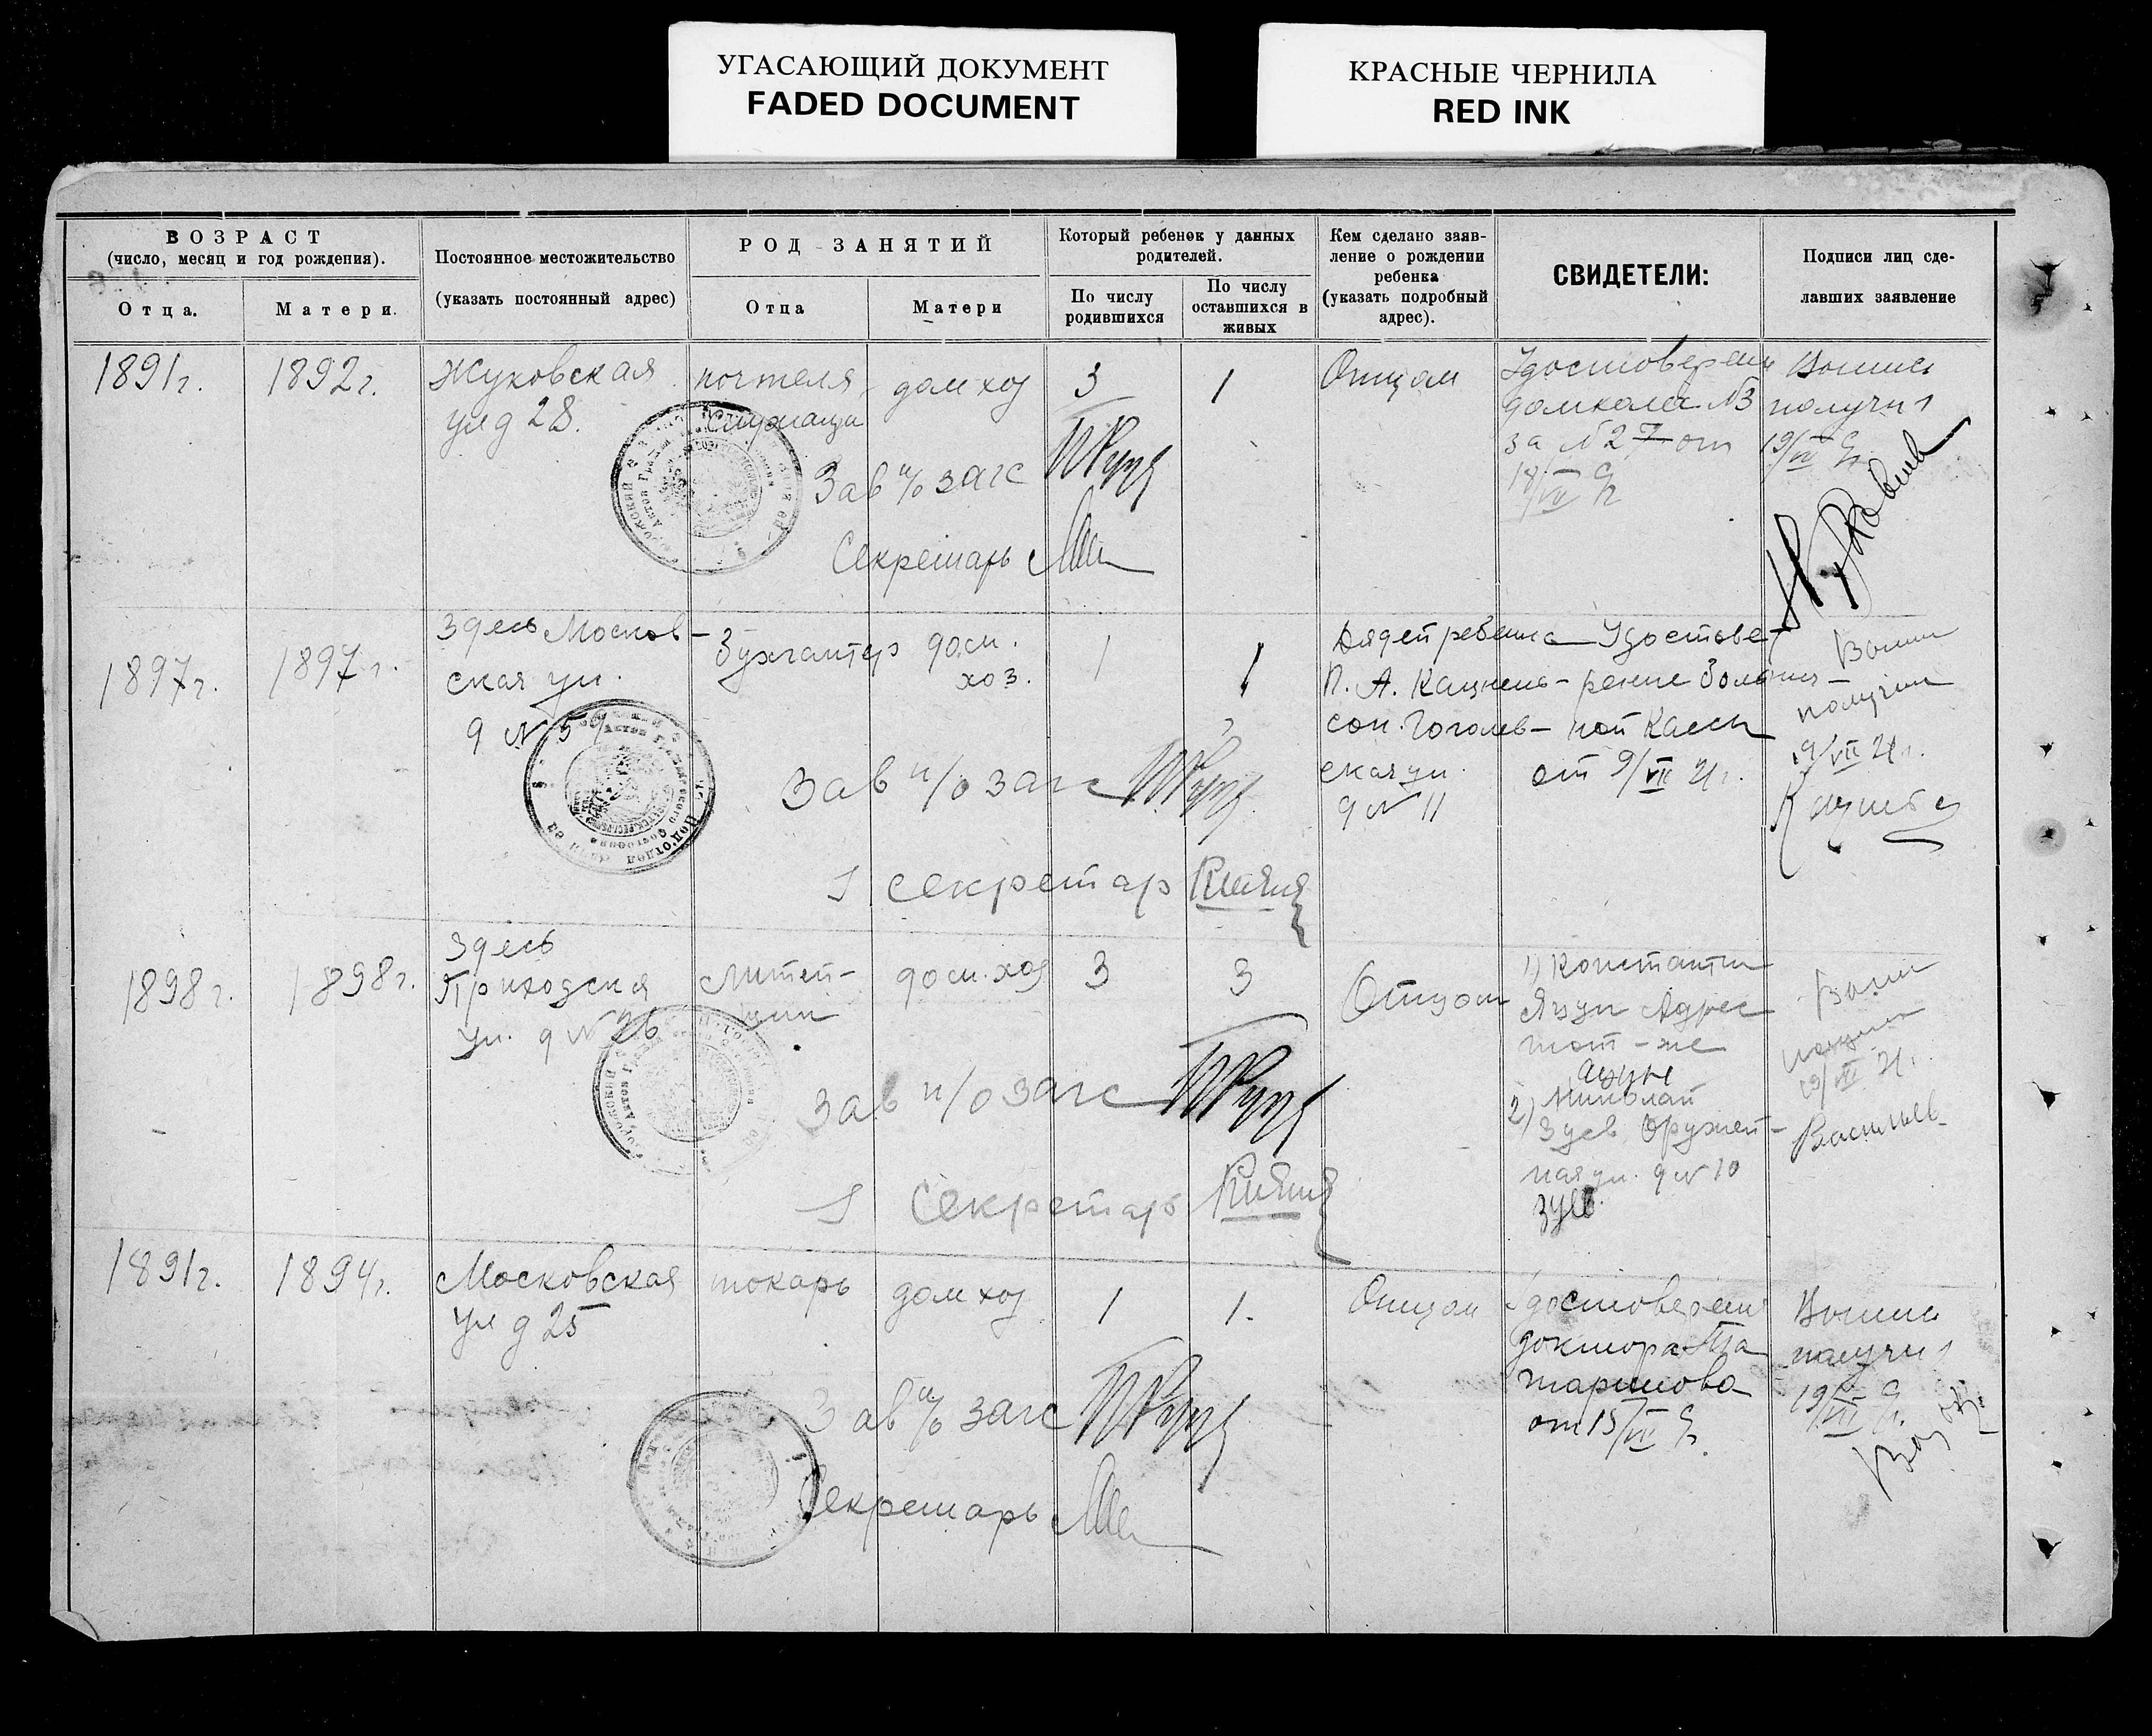 УГАСАЮЩИЙ ДОКУМЕНТ
FADED DOCUMENT
КРАСНЫЕ ЧЕРНИЛА
RED INK
ВОЗРАСТ
(число, месяц и год рождения).
Отца.
Матери.
Постоянное местожительство
(указать постоянный адрес)
РОД ЗАНЯТИЙ
Отца
Матери
Который ребенок у данных
родителей.
По числу
родившихся
По числу
оставшихся в
живых
Кем сделано заяв-
ление о рождении
ребенка
(указать подробный
адрес).
СВИДЕТЕЛИ:
Подписи лиц сде-
лавших заявление
1891г.
1892г.
Жуковская
ул д 28.
служащи
дом хоз
3
1
Отцом
Удостоверен
домкома №3
за №27 от
Выпись
получил
Зав п/о загс
Секретарь
1897г.
1897г.
Здесь Москов-
ская ул.
д № 59
Бухгалтер
дом.
хоз.
1
1
Дядей ребенка
П. А. Кацнель-
сон. Гоголев-
ская ул.
д № 11
Удостове-
рение Больнич-
ной Кассы
от 9/VII 21г.
Выпись
получил
19/VII 21г.
Зав п/о загс
Секретар
1898г.
1898г.
Здесь
Приходская
ул. д № 26
Литей-
щик
дом. хоз
3
3
Отцом
1) Константин
Яцун Адрес
тот-же
Яцун
2) Николай
Зуев Оружей-
ная ул. д № 10
Зуев
Выпись
получил
19/VII 21г.
Васильев
Зав п/о загс
Секретарь
1891г.
1894г.
Московская
ул д 25
токарь
дом хоз
1
1.
Отцом
Удостоверен
доктора
от 15/VII
Выпись
получил
Зав п/о загс
Секретарь